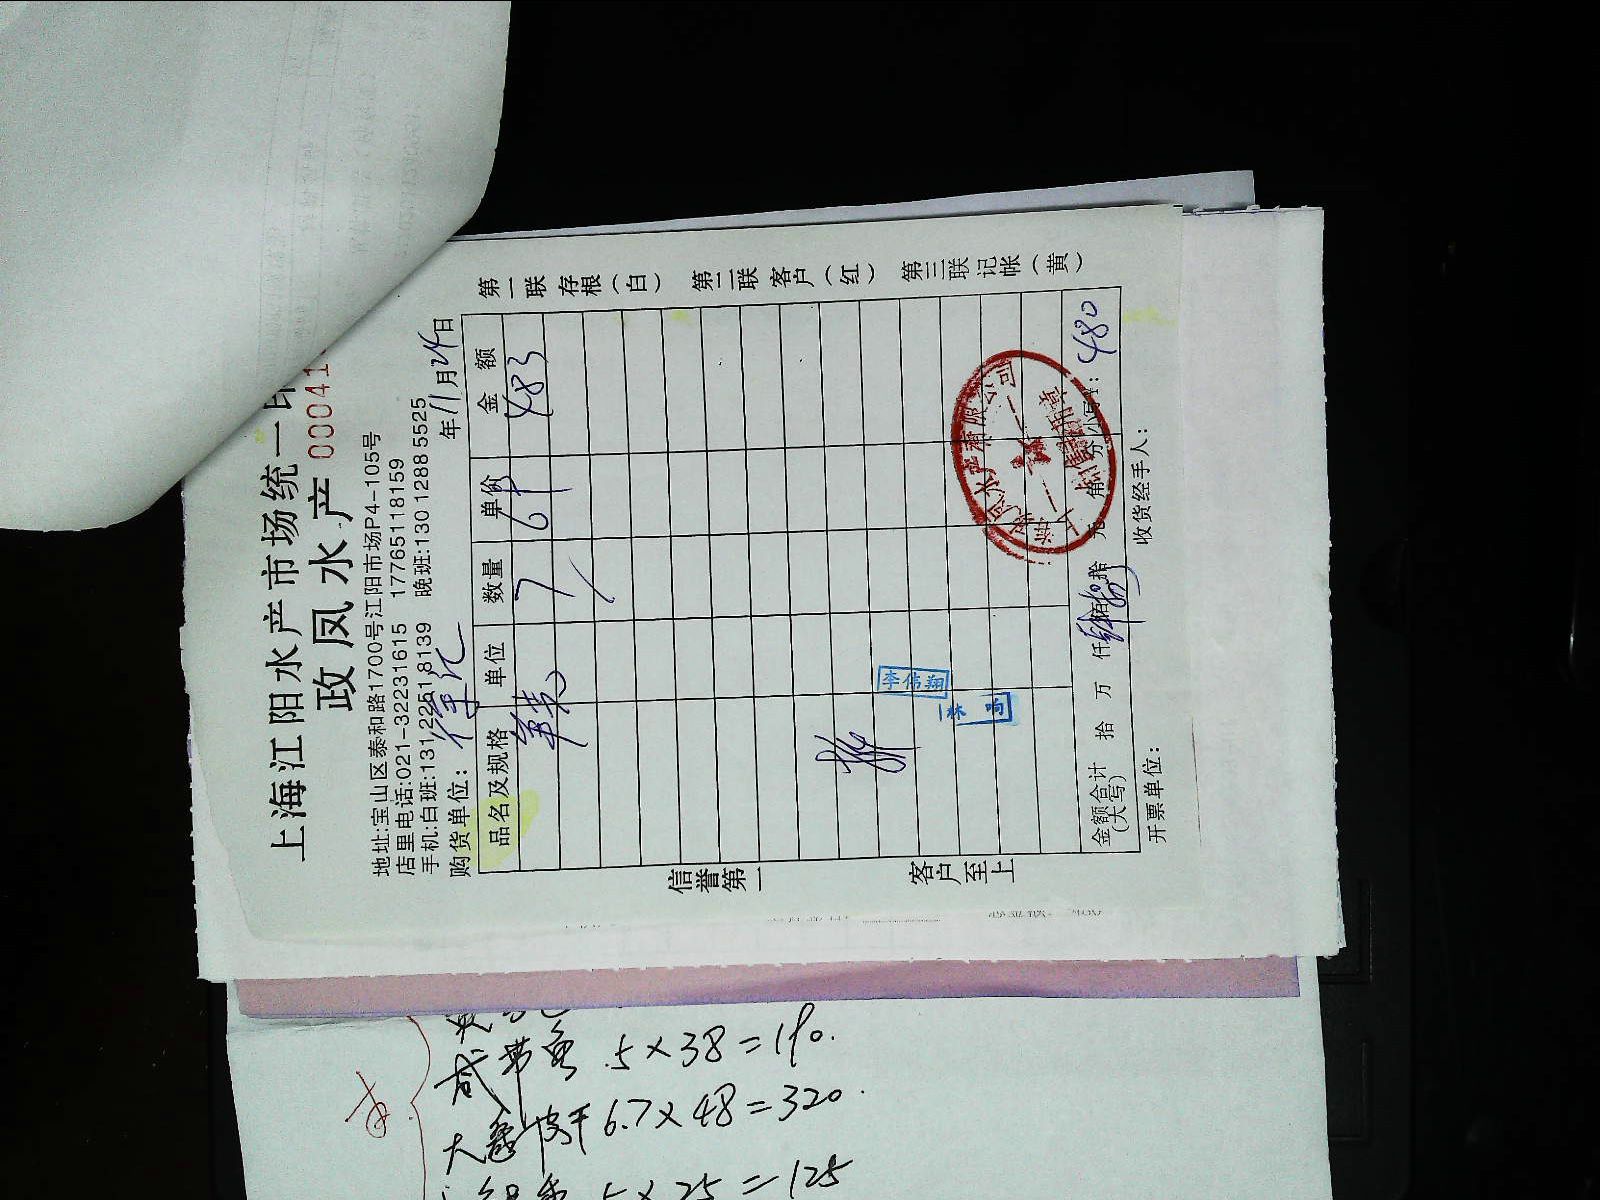 上海江阳水产市场统一印
政凤水产 00041
地址:宝山区泰和路1700号江阳市场P4-105号
店里电话:021-32231615 17765118159
手机:白班:13122518139 晚班:13012885525
购货单位: 徐记 年11月24日
品名及规格 单位 数量 单价 金额
7 69 483
李伟翔
林响
金额合计(大写) 拾 万 仟 佰 拾 元 角 分 小写¥: 480
开票单位: 收货经手人:
信誉第一 客户至上
第一联存根(白) 第二联客户(红) 第三联记帐(黄)
水产有限公司
咸带鱼 5×38=190.
大 皮干 6.7×48=320.
5×25=125